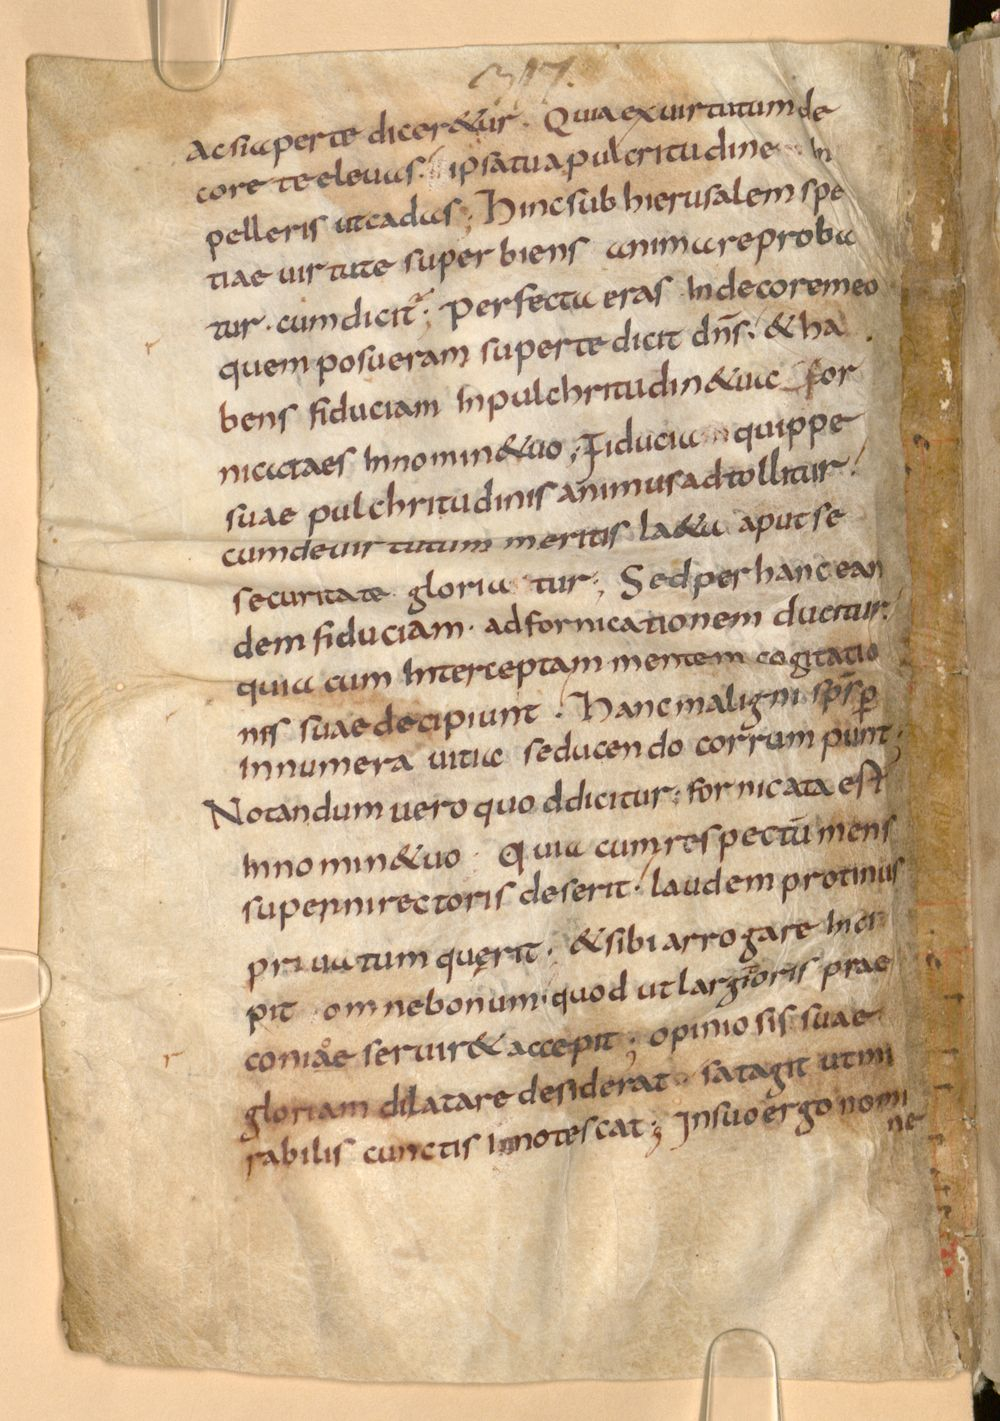 317.
ac si aperte dicer&ur. Quia ex uirtutum de
core te eleuas. ipsa tua pulcritudine In
pelleris ut cadas; Hinc sub hierusalem spe
tiae uirtute superbiens anima reproba
tur. cum dicitur; Perfecta eras In decore meo
quem posueram super te dicit dns̄. & ha
bens fiduciam In pulchritudin& ua for
nicata es In nomin& uo; Fiducia quippe
suae pulchritudinis animus adtollitur.
cum de uirtutum meritis la&a aput se
securitate gloriatur; Sed per hanc ean
dem fiduciam. ad fornicationem ducitur.
quia cum Interceptam mentem cogitatio
nis suae decipiunt. Hanc maligni sp̄s ꝑ
Innumera uitia seducendo corrumpunt;
Notandum uero quod dicitur; fornicata est
In nomin& uo. Quia cum respectū mens
superni rectoris deserit. laudem protinus
priuatum quęrit. & sibi arrogare Inci
pit omne bonum. quod ut largioris prae
coniae seruir& accepit; opinio sis suae
gloriam dilatare desiderat. satagit ut mi
rabilis cunctis Innotescat; In suo ergo nomi
ne